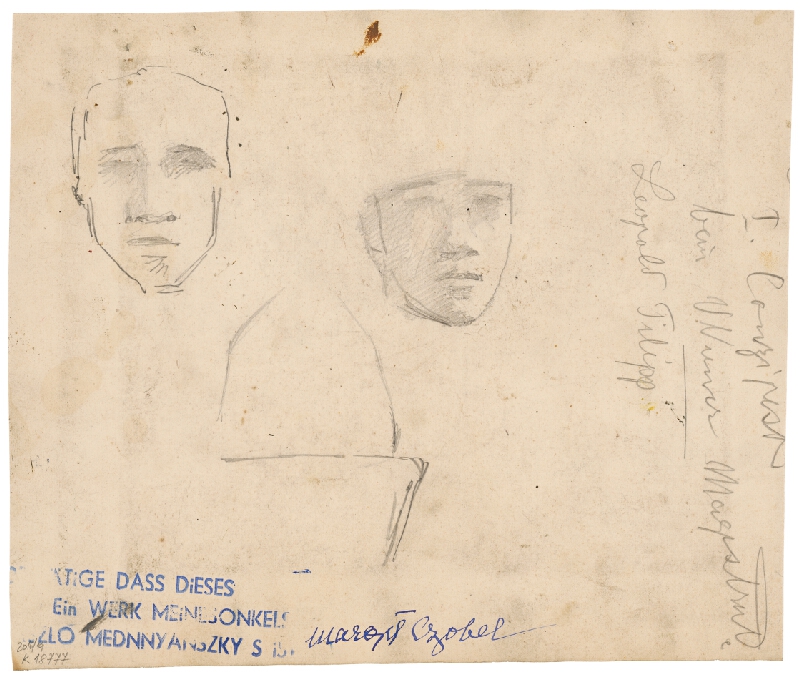 I. Conzipist
beim Wiener Magistrat
Leopold Tilipp
ÄTiGE DASS DiESES
Ein WERK MEINESONKELS
LO MEDNNYANSZKY S iST
Margit Czobel
K 18777